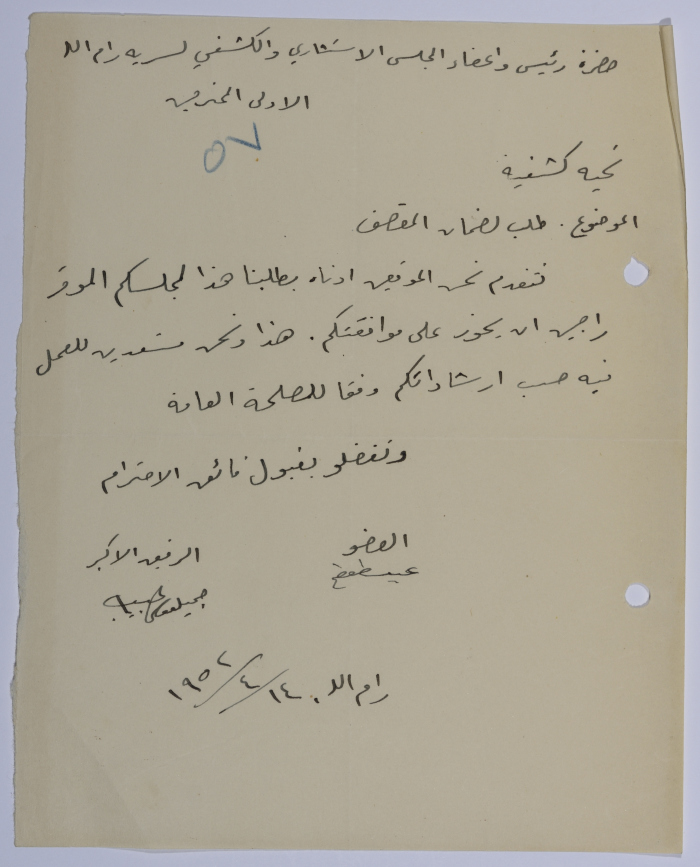 حضرة رئيس واعضاء المجلس الاستشاري والكشفي لسريه رام الله
الاولى المحترمين
٥٧
تحيه كشفية
الموضوع. طلب لضمان المقصف
نتقدم نحن الموقعين ادناه بطلبنا هذا لمجلسكم الموقر
راجين ان يحوز على موافقتكم. هذا ونحن مستعدين للعمل
فيه حسب ارشاداتكم وفقا للمصلحة العامة
وتفضلو بقبول فائق الاحترام
العضو
الرفيق الاكبر
رام الله. ١٤/٤/١٩٥٢